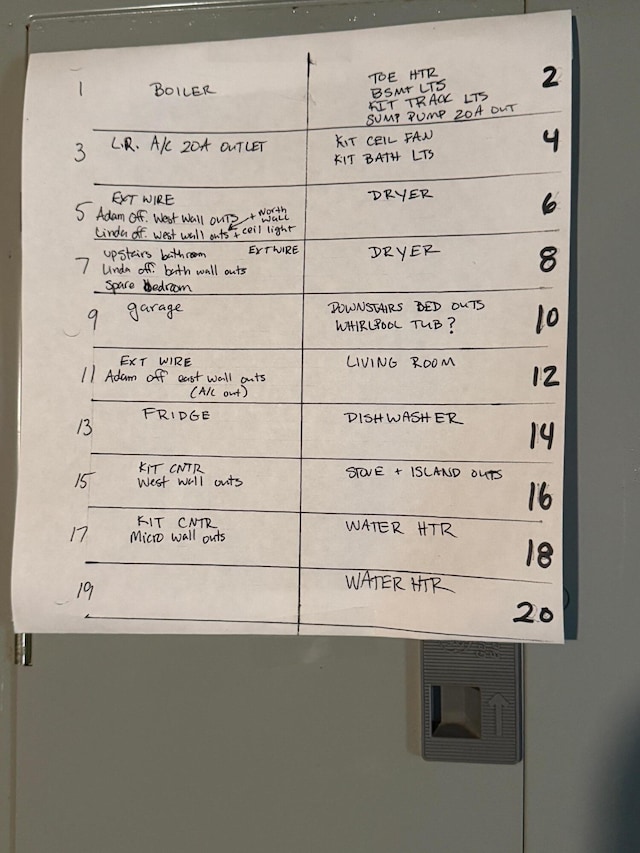 1 BOILER
TOE HTR
BSMT LTS
KIT TRACK LTS
SUMP PUMP 20A OUT
2
3 L.R. A/C 20A OUTLET
KIT CEIL FAN
KIT BATH LTS
4
5 EXT WIRE
Adam Off. West Wall outs + North Wall
Linda off. west wall outs + ceil light
DRYER
6
7 upstairs bathroom EXT WIRE
Linda off. bath wall outs
Spare bedroom
DRYER
8
9 garage
DOWNSTAIRS BED OUTS
WHIRLPOOL TUB?
10
11 EXT WIRE
Adam off east wall outs
(A/C out)
LIVING ROOM
12
13 FRIDGE
DISHWASHER
14
15 KIT CNTR
West wall outs
STOVE + ISLAND OUTS
16
17 KIT CNTR
Micro wall outs
WATER HTR
18
19
WATER HTR
20